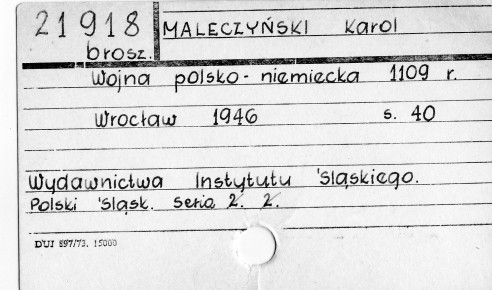 21918 MALECZYŃSKI Karol
brosz.
Wojna polsko-niemiecka 1109 r.
Wrocław 1946 s. 40
Wydawnictwa Instytutu Śląskiego.
Polski Śląsk. Seria 2. 2.
DUJ 897/73. 15000